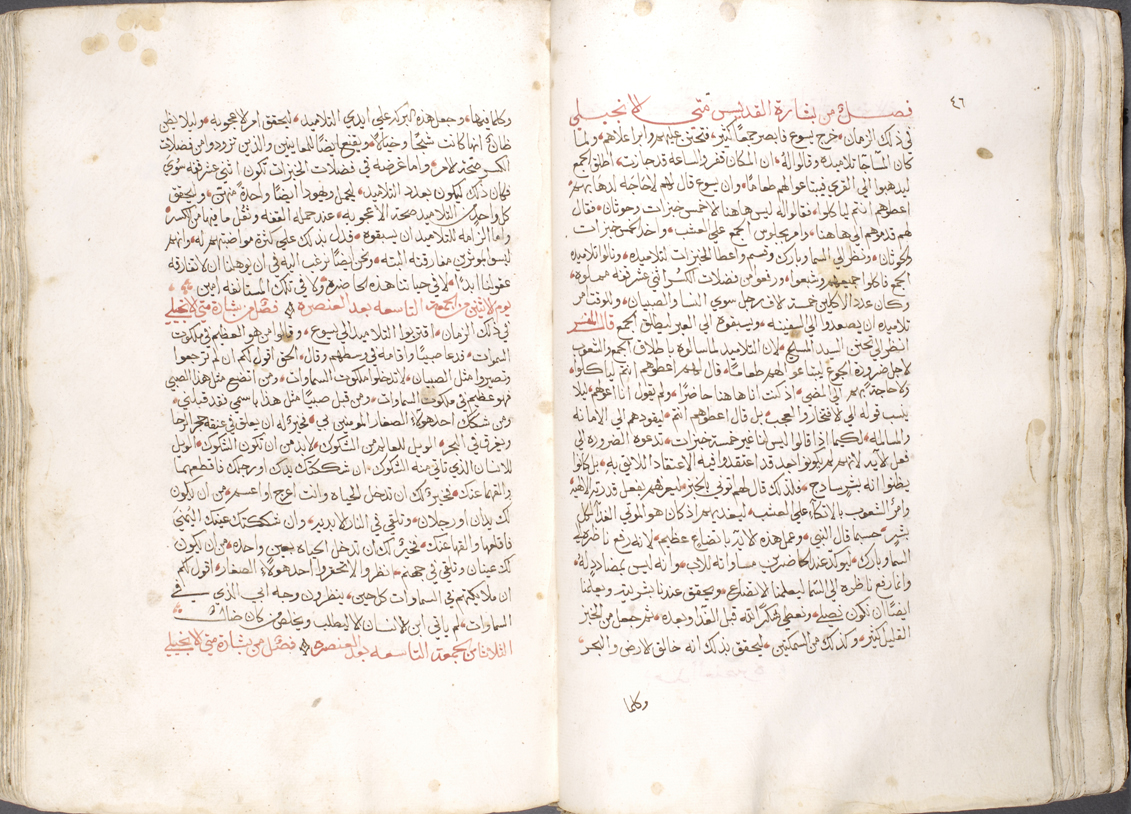 ٤٦
فصل من بشارة القديس متى الانجيلي
في ذلك الزمان خرج يسوع فابصر جمعًا كثير فتحنن عليهم وابرا اعلاهم ولما
كان المسا جا تلاميذه وقالوا له ان المكان قفر والساعه قد جازت اطلق الجمع
ليذهبوا الي القري فيبتاعوا لهم طعامًا وان يسوع قال لهم لا حاجه لذهابهم
اعطوهم انتم لياكلوا فقالوا له ليس هاهنا الا خمس خبزات وحوتان فقال
لهم قدموهم الي هاهنا وامر بجلوس الجمع علي العشب واخذ الخمس خبزات
والحوتان ونظر الي السما وبارك وقسم واعطا الخبزات لتلاميذه وناولا تلاميذه
الجمع فاكلوا اجمعهم وشبعوا ورفعوا من فضلات الكسر اثني عشر قفه مملوه
وكان عدد الاكلين خمسة الاف رجل سوي النسا والصبيان وللوقت امر
تلاميذه ان يصعدوا الي السفينه ويسبقوه الي العبر ليطلق الجمع قال المفسر
انظر الي تحنن السيد المسيح لان التلاميذ لما سالوه باطلاق الجمع والشعوب
لاجل ضرورة الجوع ليبتاعوا لهم طعامًا قال لهم اعطوهم انتم لياكلوا
ولا حاجة بهم الي المضي اذ كنت انا هاهنا حاضرًا ولم يقول انا اعطيهم ليلا
ينسب قوله الي الافتخار والعجب بل قال اعطوهم انتم ليقودهم الي الامانه
والمساله لكيما اذا قالوا ليس لنا غير خمسة خبزات تدعوه الضروره الي
فعل الايه لانهم لم يكونوا بعد قد اعتقدوا فيه الاعتقاد اللايق به بل كانوا
يظنوا انه بشر سادج ولذلك قال لهم اتوني بالخبز ليعرفهم بفعل قدرته الالهيه
وامر الشعوب بالاتكا علي العشب ليغذيهم اذ كان هو الموتي الغذا لكل
بشر حسبما قال النبي وعمل هذه الايه باتضاع عظيم لانه رفع ناظره الي
السما وبارك ليوكد عند الحاضرين مساواته للاب وانه ليس بمضادد له
وانما رفع ناظره الي السما ليعلمنا الاتضاع ويحقق عندنا بشريته ويعلمنا
ايضًا ان نكون نصلي ونعطي شكر الله قبل الغدا وبعده ثم جعل من الخبز
القليل كثير وكذلك من السمكتين ليحقق بذلك انه خالق الارض والبحر
وكلما
وكلما فيها وجعل هذه البركه علي ايدي التلاميذ ليحقق امر الاعجوبه وليلا يظن
ظان انها كانت شبحًا وخيالًا ويقنع ايضًا المعاينين والذين تزودوا من فضلات
الكسر صحة الامر واما غرضه في فضلات الخبزات تكون اثني عشر قفه سوي
فكان ذلك ليكون بعدد التلاميذ ليحمل ويهودا ايضًا واحدةً منهن ويحقق
كل واحد من التلاميذ صحة الاعجوبه عند حمله القفه وثقل ما فيها من الكسر
واما الزامه للتلاميذ ان يسبقوه فدل بذلك علي كثرة مواضبتهم له وانهم
ليسوا يوثرون مفارقته البته ونحن ايضًا نرغب اليه في ان يوهلنا ان لا تفارقه
عقولنا ابدًا لا في حياتنا هذه الحاضره ولا في تلك المستانفه امين
يوم الاثنين من الجمعه التاسعه بعد العنصره فصل من بشارة متى الانجيلي
في ذلك الزمان اقتربوا التلاميذ الي يسوع وقالوا من هو العظيم في ملكوت
السموات فدعا صبيًا واقامه في وسطهم وقال الحق اقول لكم ان لم ترجعوا
وتصيروا مثل الصبيان لا تدخلوا ملكوت السماوات ومن اتضع مثل هذا الصبي
فهو عظيم في ملكوت السماوات ومن قبل صبيًا مثل هذا باسمي فقد قبلني
ومن شكك احد هولاء الصغار المومنين بي فخير له ان يعلق في عنقه حجر الرحا
ويغرق في البحر الويل للعالم من الشكوك لابد من ان تكون الشكوك الويل
للانسان الذي تاتي منه الشكوك ان شككتك يدك او رجلك فاقطعهما
والقهما عنك فخير لك ان تدخل الحياه وانت اعرج او اعسم من ان يكون
لك يدان او رجلان وتلقي في النار الابديه وان شككتك عينك اليمنى
فاقلعها والقها عنك فخير لك ان تدخل الحياه بعين واحده من ان يكون
لك عينان وتلقي في جهنم انظروا لا تحقروا احد هولاء الصغار اقول لكم
ان ملايكتهم في السماوات كل حين ينظرون وجه ابي الذي في
السماوات لم ياتي ابن الانسان الا ليطلب ويخلص من كان ضالًا
الثلاثا من الجمعه التاسعه بعد العنصره فصل من بشارة متى الانجيلي